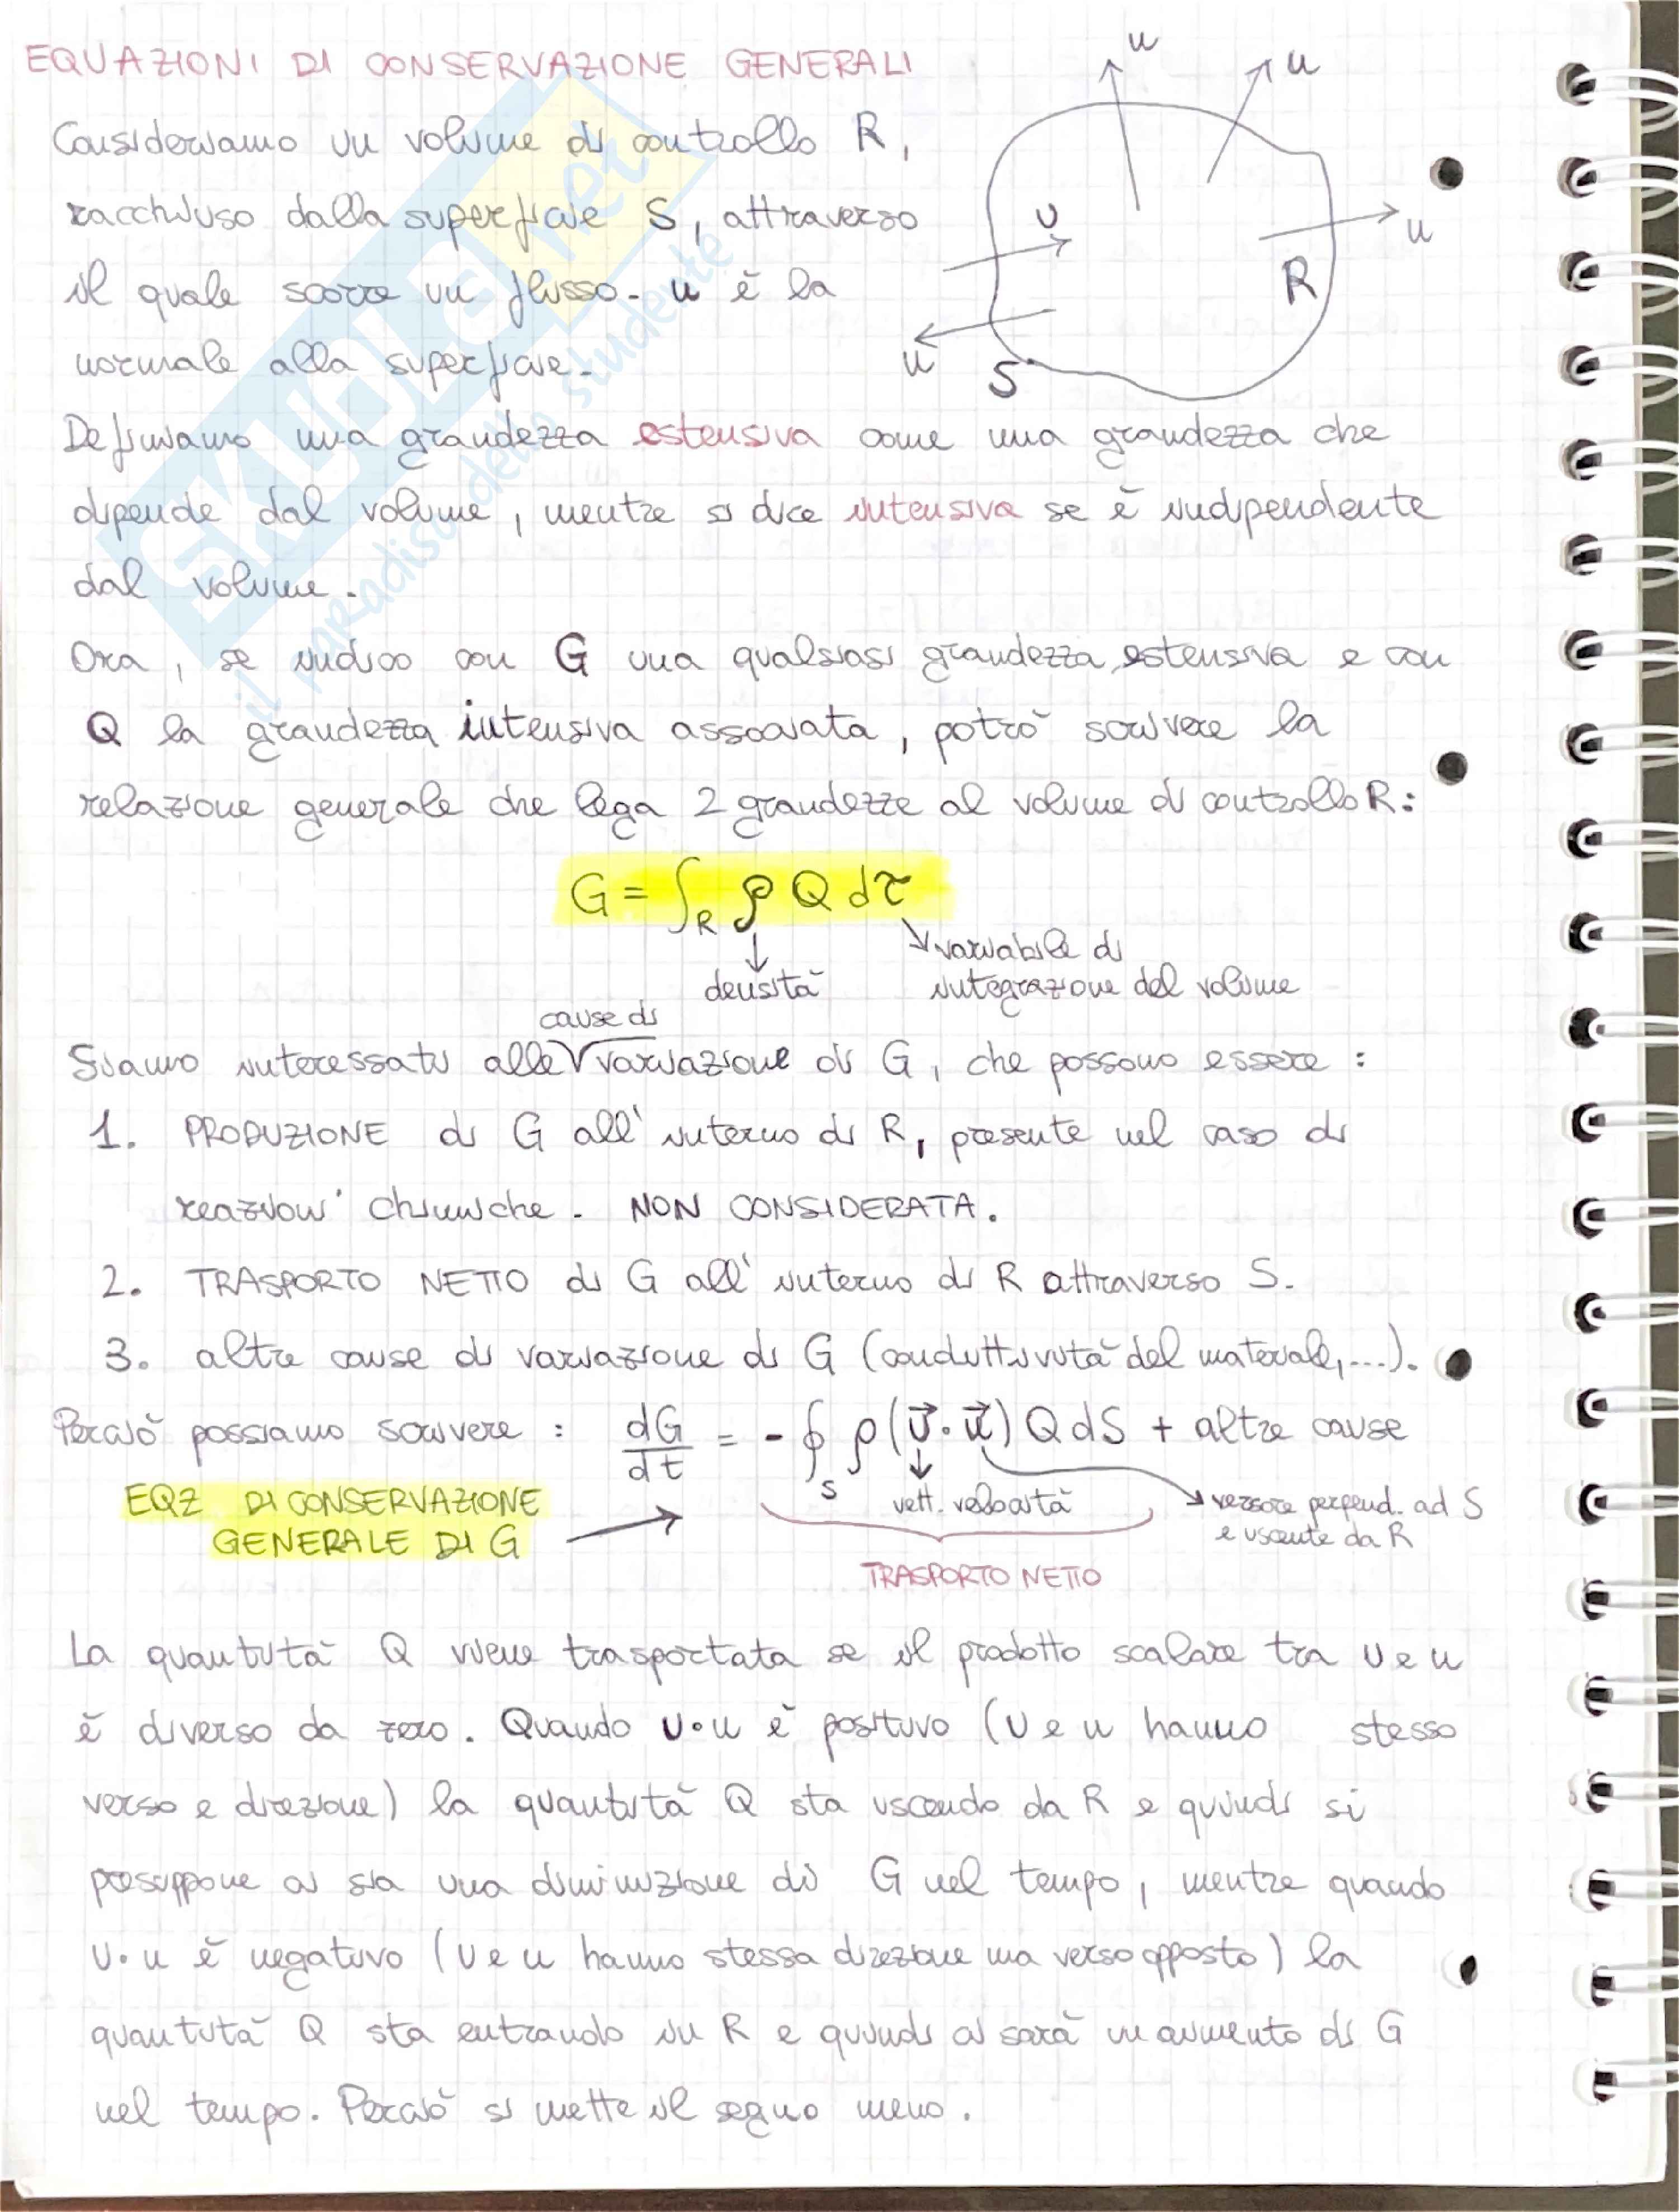 EQUAZIONI DI CONSERVAZIONE GENERALI
Consideriamo un volume di controllo R,
racchiuso dalla superficie S, attraverso
il quale scorre un flusso. n è la
normale alla superficie.
n
n
v
n
R
n
S
Definiamo una grandezza estensiva come una grandezza che
dipende dal volume, mentre si dice intensiva se è indipendente
dal volume.
Ora, se indico con G una qualsiasi grandezza estensiva e con
Q la grandezza intensiva associata, potrò scrivere la
relazione generale che lega 2 grandezze al volume di controllo R:
G = ∫R ρ Q dτ
↓ densità
↘ variabile di
integrazione del volume
cause di
Siamo interessati alle √ variazione di G, che possono essere :
1. PRODUZIONE di G all'interno di R, presente nel caso di
reazioni chimiche. NON CONSIDERATA.
2. TRASPORTO NETTO di G all'interno di R attraverso S.
3. altre cause di variazione di G (conduttività del materiale,...).
Perciò possiamo scrivere : dG/dt = - ∮S ρ (v⃗ · n⃗) Q dS + altre cause
EQZ DI CONSERVAZIONE
GENERALE DI G
vett. velocità
versore perpend. ad S
e uscente da R
TRASPORTO NETTO
La quantità Q viene trasportata se il prodotto scalare tra v e n
è diverso da zero. Quando v·n è positivo (v e n hanno stesso
verso e direzione) la quantità Q sta uscendo da R e quindi si
presuppone ci sia una diminuzione di G nel tempo, mentre quando
v·n è negativo (v e n hanno stessa direzione ma verso opposto) la
quantità Q sta entrando in R e quindi ci sarà un aumento di G
nel tempo. Perciò si mette il segno meno.
SKUOLA.net
il paradiso dello studente